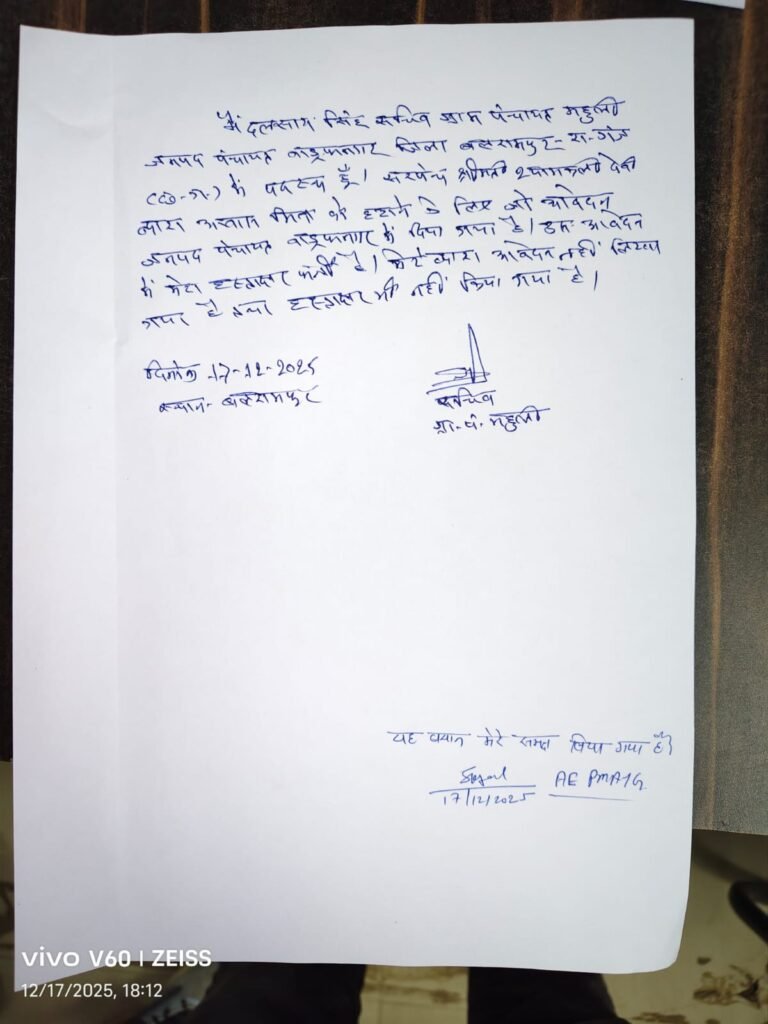 मैं दलसाय सिंह सचिव ग्राम पंचायत महुली
जनपद पंचायत वाड्रफनगर जिला बलरामपुर-रा-गंज
(छ-ग-) में पदस्थ हूँ। सरपंच श्रीमती श्यामकली देवी
द्वारा आवास मित्र को हटाने के लिए जो आवेदन
जनपद पंचायत वाड्रफनगर में दिया गया है। उक्त आवेदन
में मेरा हस्ताक्षर फर्जी है। मेरे द्वारा आवेदन नहीं लिखा
गया है तथा हस्ताक्षर भी नहीं किया गया है।
दिनांक 17-12-2025
स्थान- बलरामपुर
सचिव
ग्रा-पं- महुली
यह बयान मेरे समक्ष लिया गया है।
AE PMAYG
17/12/2025
vivo V60 | ZEISS
12/17/2025, 18:12